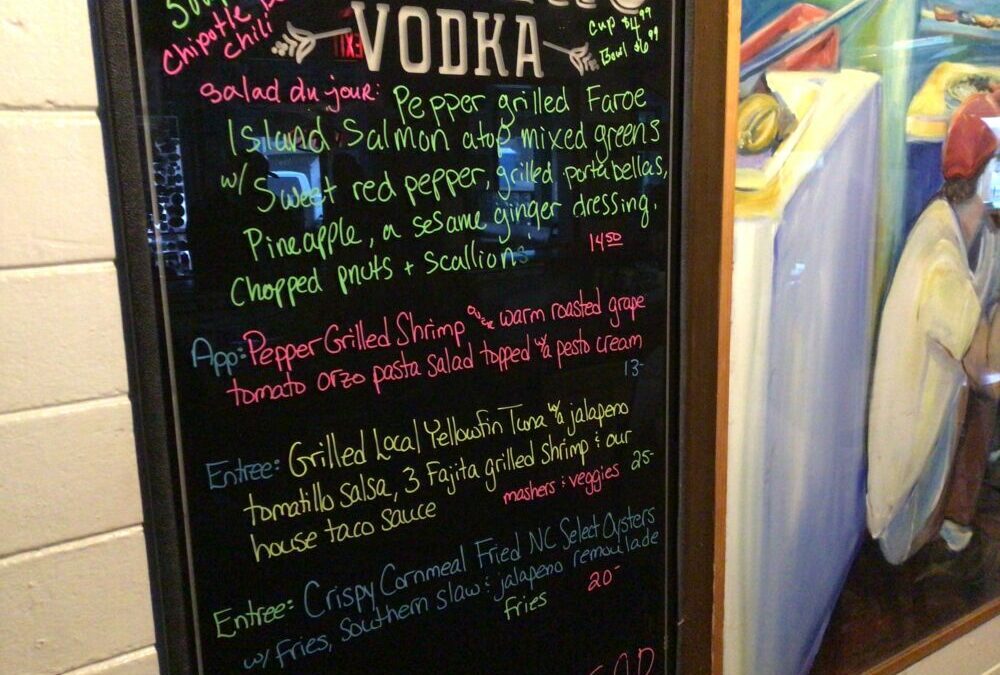 Chipotle
chili
VODKA
cup $4.99
Bowl $6.99
Salad du jour: Pepper grilled Faroe
Island Salmon atop mixed greens
w/ Sweet red pepper, grilled portabellas,
Pineapple, a sesame ginger dressing.
Chopped pnuts + scallions 14.50
App: Pepper Grilled Shrimp over warm roasted grape
tomato orzo pasta salad topped w/a pesto cream
13-
Entree: Grilled Local Yellowfin Tuna w/a jalapeno
tomatillo salsa, 3 Fajita grilled shrimp & our
house taco sauce mashers & veggies 25-
Entree: Crispy Cornmeal Fried NC Select Oysters
w/ fries, Southern slaw & jalapeno remoulade
fries 20-